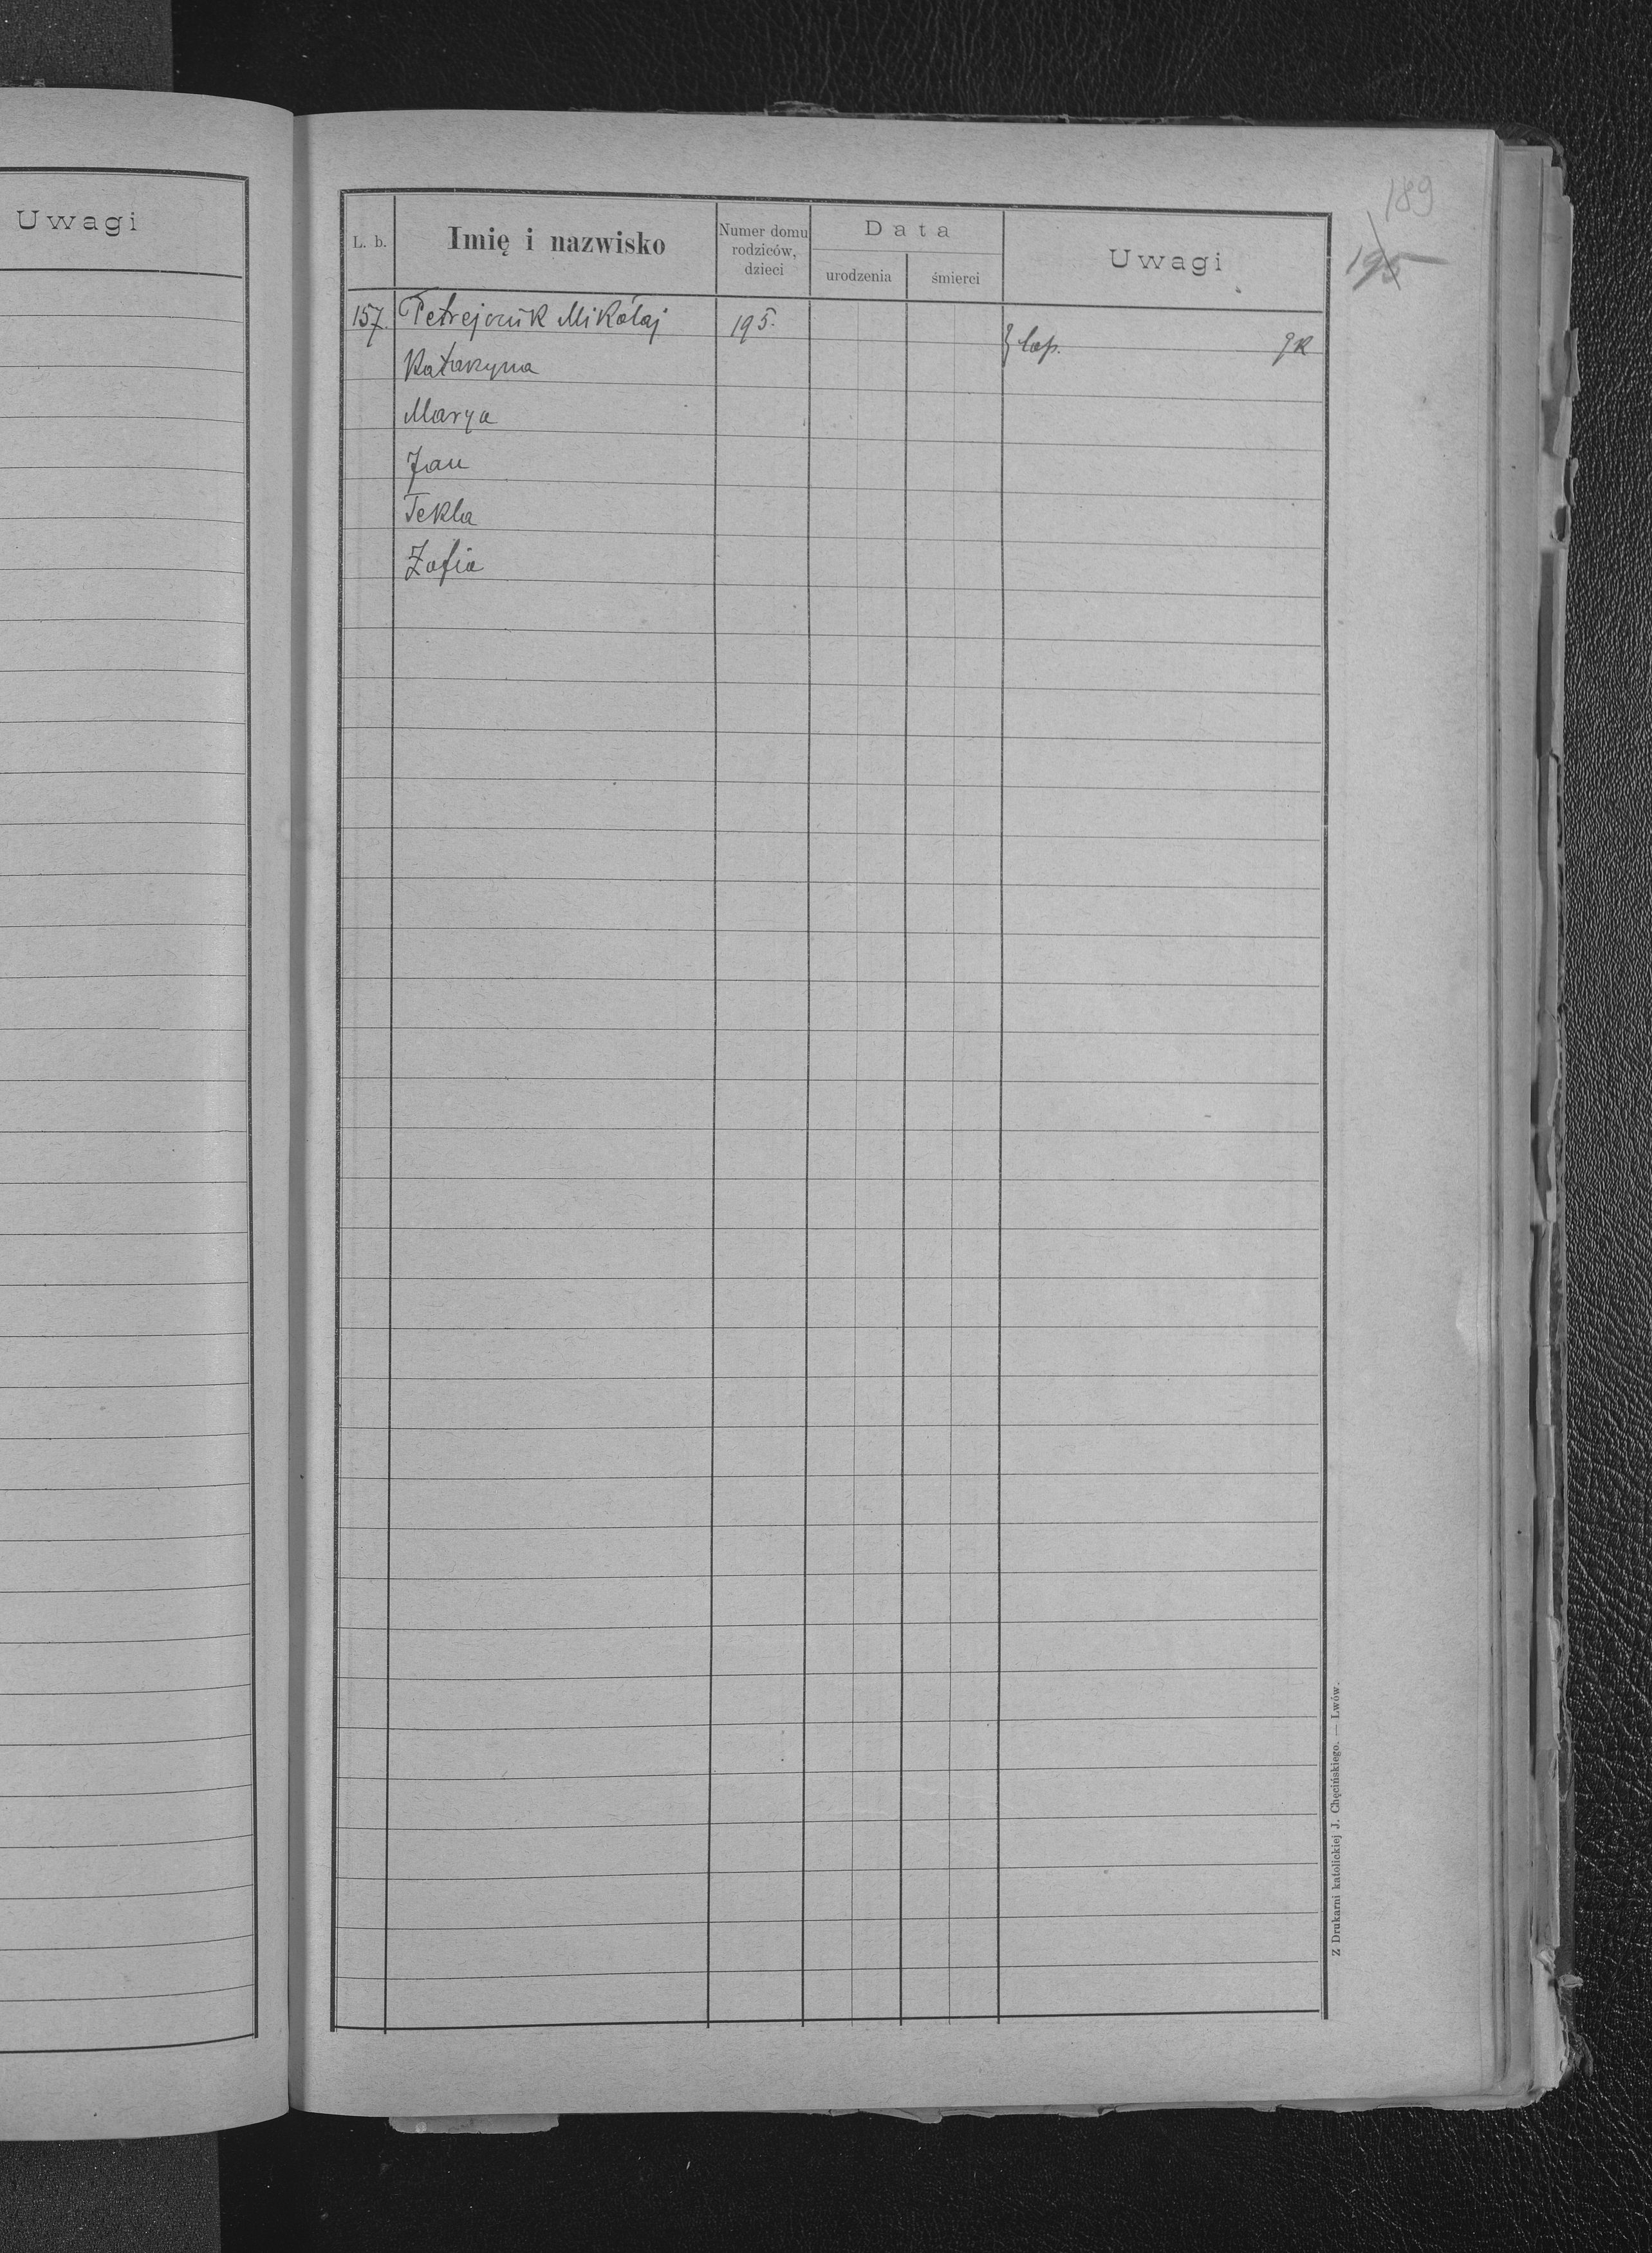 Uwagi
189
195
L. b.
Imię i nazwisko
Numer domu
rodziców,
dzieci
Data
urodzenia
śmierci
Uwagi
157. Mikołaj 195. gk
Katarzyna
Marya
Jan
Tekla
Zofia
Z Drukarni katolickiej J. Chęcińskiego. — Lwów.